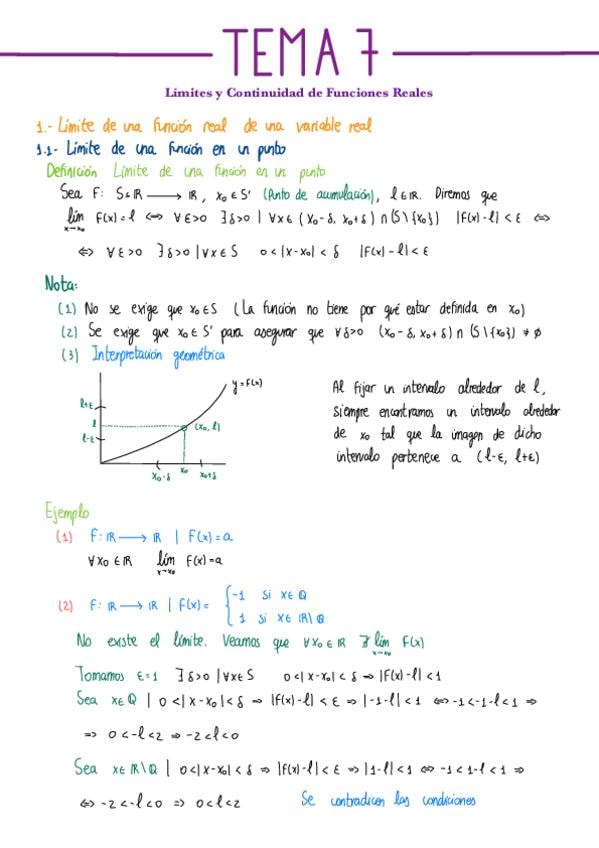 TEMA 7
Límites y Continuidad de Funciones Reales
1.- Límite de una función real de una variable real
1.1- Límite de una función en un punto
Definición Límite de una función en un punto
Sea F: S⊆ℝ ⟶ ℝ, x₀ ∈ S' (Punto de acumulación), l∈ℝ. Diremos que
lim F(x)=l ⇔ ∀ε>0 ∃δ>0 | ∀x∈ (x₀-δ, x₀+δ) ∩ (S\{x₀}) |F(x)-l| < ε ⇔
x→x₀
⇔ ∀ε>0 ∃δ>0 | ∀x∈S 0<|x-x₀|<δ |F(x)-l|<ε
Nota:
(1) No se exige que x₀∈S (La función no tiene por qué estar definida en x₀)
(2) Se exige que x₀∈S' para asegurar que ∀δ>0 (x₀-δ, x₀+δ) ∩ (S\{x₀}) ≠ ∅
(3) Interpretación geométrica
y=F(x)
l+ε
l
(x₀, l)
l-ε
x₀-δ x₀ x₀+δ
Al fijar un intervalo alrededor de l,
siempre encontramos un intervalo alrededor
de x₀ tal que la imagen de dicho
intervalo pertenece a (l-ε, l+ε)
Ejemplo
(1) F: ℝ ⟶ ℝ | F(x)=a
∀x₀∈ℝ lim F(x)=a
x→x₀
(2) F: ℝ ⟶ ℝ | F(x)= { -1 si x∈ℚ
1 si x∈ℝ\ℚ
No existe el límite. Veamos que ∀x₀∈ℝ ∄ lim F(x)
x→x₀
Tomamos ε=1 ∃δ>0 | ∀x∈S 0<|x-x₀|<δ ⇒ |F(x)-l|<1
Sea x∈ℚ | 0<|x-x₀|<δ ⇒ |F(x)-l|<ε ⇒ |-1-l|<1 ⇔ -1<-1-l<1 ⇒
⇒ 0<-l<2 ⇒ -2<l<0
Sea x∈ℝ\ℚ | 0<|x-x₀|<δ ⇒ |F(x)-l|<ε ⇒ |1-l|<1 ⇔ -1<1-l<1 ⇒
⇔ -2<-l<0 ⇒ 0<l<2 Se contradicen las condiciones